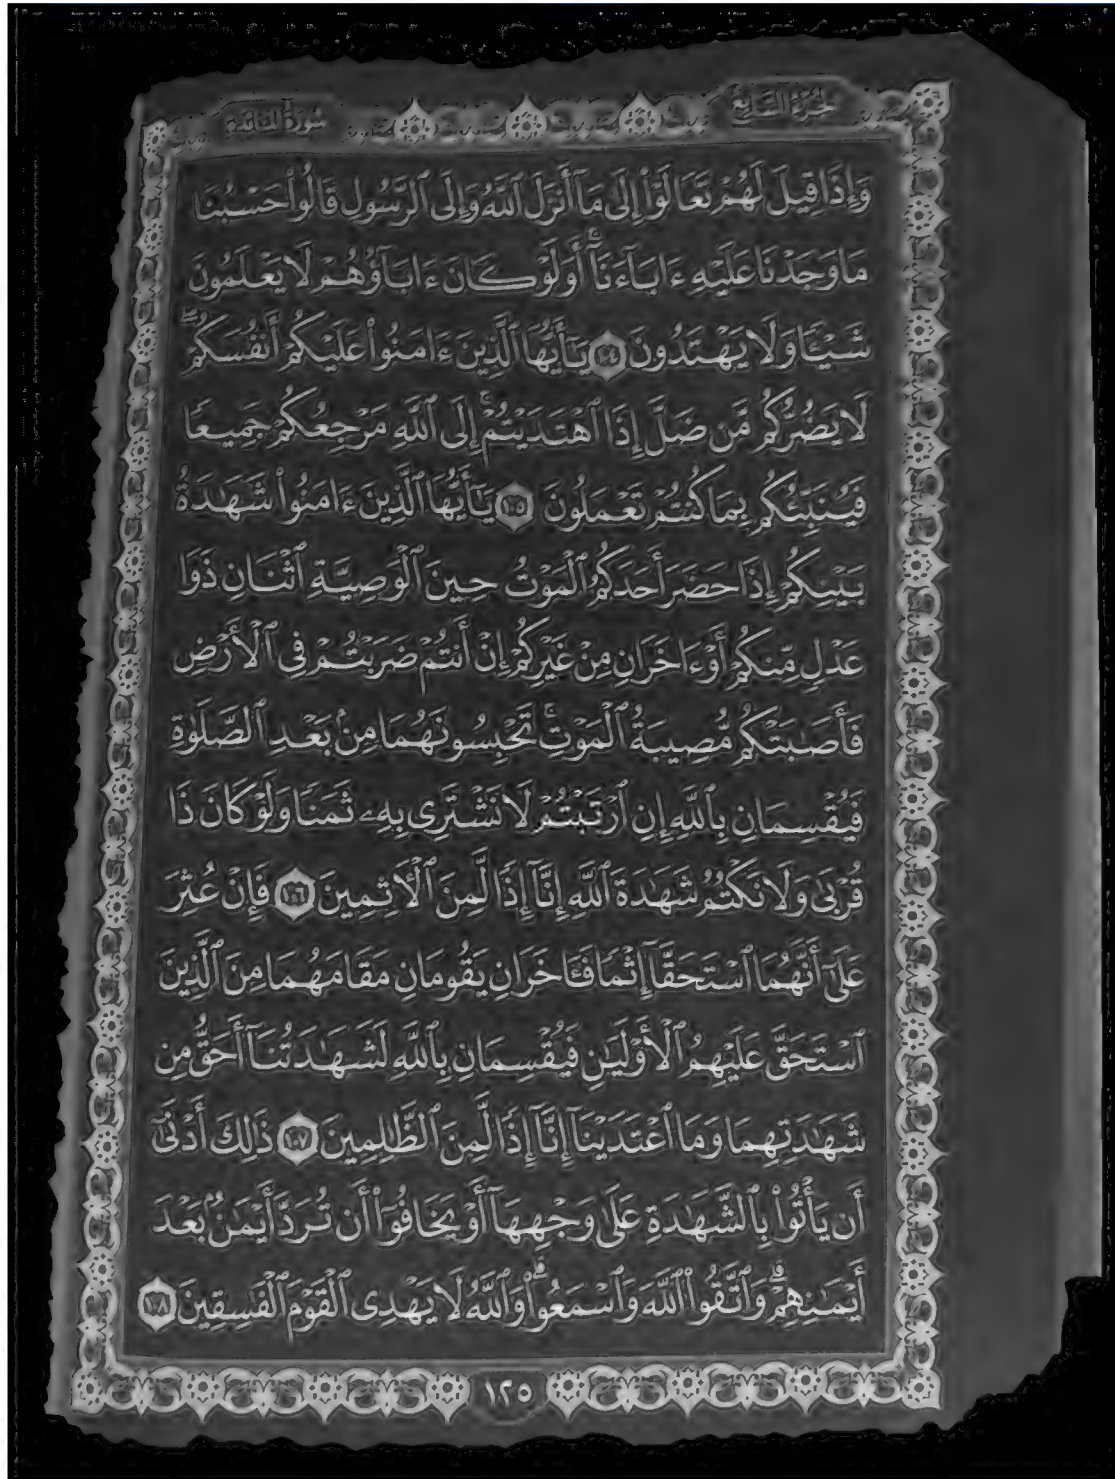 الجزء السابع
سورة المائدة
وَإِذَا قِيلَ لَهُمْ تَعَالَوْا۟ إِلَىٰ مَآ أَنزَلَ ٱللَّهُ وَإِلَى ٱلرَّسُولِ قَالُوا۟ حَسْبُنَا
مَا وَجَدْنَا عَلَيْهِ ءَابَآءَنَآ ۚ أَوَلَوْ كَانَ ءَابَآؤُهُمْ لَا يَعْلَمُونَ
شَيْـًٔا وَلَا يَهْتَدُونَ ١٠٤ يَـٰٓأَيُّهَا ٱلَّذِينَ ءَامَنُوا۟ عَلَيْكُمْ أَنفُسَكُمْ ۖ
لَا يَضُرُّكُم مَّن ضَلَّ إِذَا ٱهْتَدَيْتُمْ ۚ إِلَى ٱللَّهِ مَرْجِعُكُمْ جَمِيعًا
فَيُنَبِّئُكُم بِمَا كُنتُمْ تَعْمَلُونَ ١٠٥ يَـٰٓأَيُّهَا ٱلَّذِينَ ءَامَنُوا۟ شَهَـٰدَةُ
بَيْنِكُمْ إِذَا حَضَرَ أَحَدَكُمُ ٱلْمَوْتُ حِينَ ٱلْوَصِيَّةِ ٱثْنَانِ ذَوَا
عَدْلٍ مِّنكُمْ أَوْ ءَاخَرَانِ مِنْ غَيْرِكُمْ إِنْ أَنتُمْ ضَرَبْتُمْ فِى ٱلْأَرْضِ
فَأَصَـٰبَتْكُم مُّصِيبَةُ ٱلْمَوْتِ ۚ تَحْبِسُونَهُمَا مِنۢ بَعْدِ ٱلصَّلَوٰةِ
فَيُقْسِمَانِ بِٱللَّهِ إِنِ ٱرْتَبْتُمْ لَا نَشْتَرِى بِهِۦ ثَمَنًا وَلَوْ كَانَ ذَا
قُرْبَىٰ وَلَا نَكْتُمُ شَهَـٰدَةَ ٱللَّهِ إِنَّآ إِذًا لَّمِنَ ٱلْـَٔاثِمِينَ ١٠٦ فَإِنْ عُثِرَ
عَلَىٰٓ أَنَّهُمَا ٱسْتَحَقَّآ إِثْمًا فَـَٔاخَرَانِ يَقُومَانِ مَقَامَهُمَا مِنَ ٱلَّذِينَ
ٱسْتَحَقَّ عَلَيْهِمُ ٱلْأَوْلَيَـٰنِ فَيُقْسِمَانِ بِٱللَّهِ لَشَهَـٰدَتُنَآ أَحَقُّ مِن
شَهَـٰدَتِهِمَا وَمَا ٱعْتَدَيْنَآ إِنَّآ إِذًا لَّمِنَ ٱلظَّـٰلِمِينَ ١٠٧ ذَٰلِكَ أَدْنَىٰٓ
أَن يَأْتُوا۟ بِٱلشَّهَـٰدَةِ عَلَىٰ وَجْهِهَآ أَوْ يَخَافُوٓا۟ أَن تُرَدَّ أَيْمَـٰنٌۢ بَعْدَ
أَيْمَـٰنِهِمْ ۗ وَٱتَّقُوا۟ ٱللَّهَ وَٱسْمَعُوا۟ ۗ وَٱللَّهُ لَا يَهْدِى ٱلْقَوْمَ ٱلْفَـٰسِقِينَ ١٠٨
١٢٥